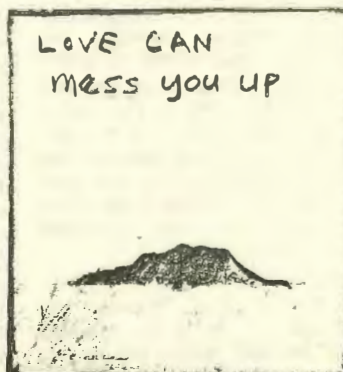 LOVE CAN
mess you up